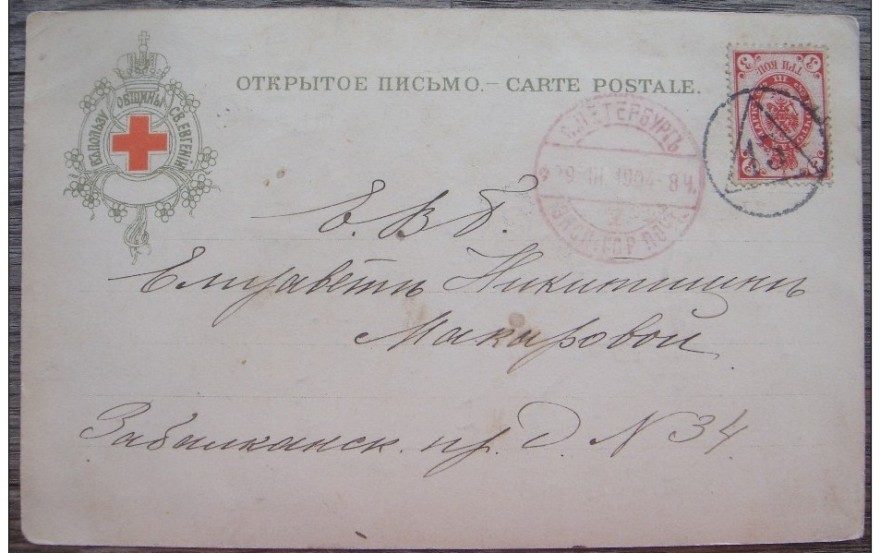 ВЪ ПОЛЬЗУ ОБЩИНЫ СВ. ЕВГЕНІИ
ОТКРЫТОЕ ПИСЬМО.— CARTE POSTALE.
3 ТРИ КОП. 3
С.ПЕТЕРБУРГЪ
1904 - 8 Ч.
15
Е. В. Б.
Елизаветѣ Никитишнѣ
Макаровой
Забалканск. пр. д. N 34